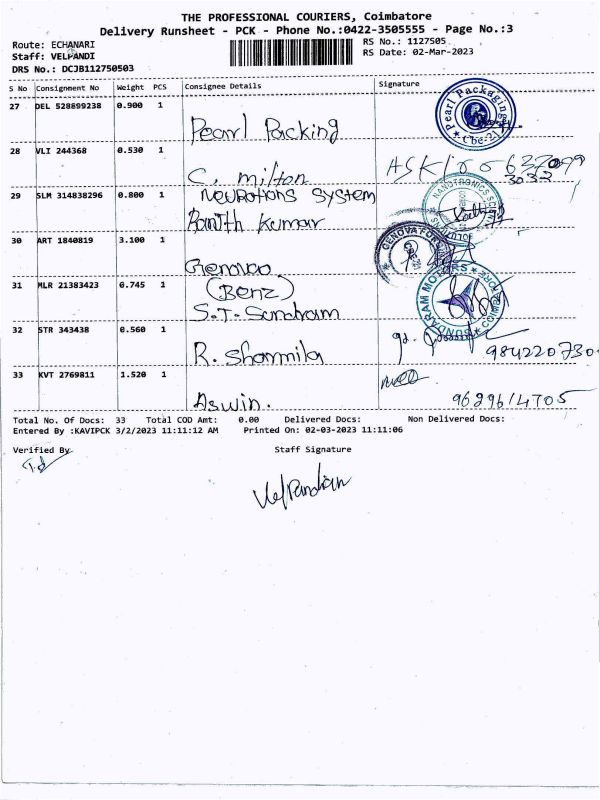 THE PROFESSIONAL COURIERS, Coimbatore
Delivery Runsheet - PCK - Phone No.:0422-3505555 - Page No.:3
Route: ECHANARI
RS No.: 1127505
Staff: VELPANDI
RS Date: 02-Mar-2023
DRS No.: DCJB112750503
S No Consignment No Weight PCS Consignee Details Signature
27 DEL 528899238 0.900 1
Pearl Packing
Pearl Packaging
Cbe-21
28 VLI 244368 0.530 1
C. Milton
29 SLM 314838296 0.800 1
System
Kumar
30 ART 1840819 3.100 1
31 MLR 21383423 0.745 1
(Benz)
S.T. Sundram
SUNDARAM MOTORS
COIMBATORE
32 STR 343438 0.560 1
R. Sharmila
984220730
33 KVT 2769811 1.520 1
Aswin.
9629614705
Total No. Of Docs: 33 Total COD Amt: 0.00 Delivered Docs: Non Delivered Docs:
Entered By :KAVIPCK 3/2/2023 11:11:12 AM Printed On: 02-03-2023 11:11:06
Verified By
Staff Signature
VelPandian